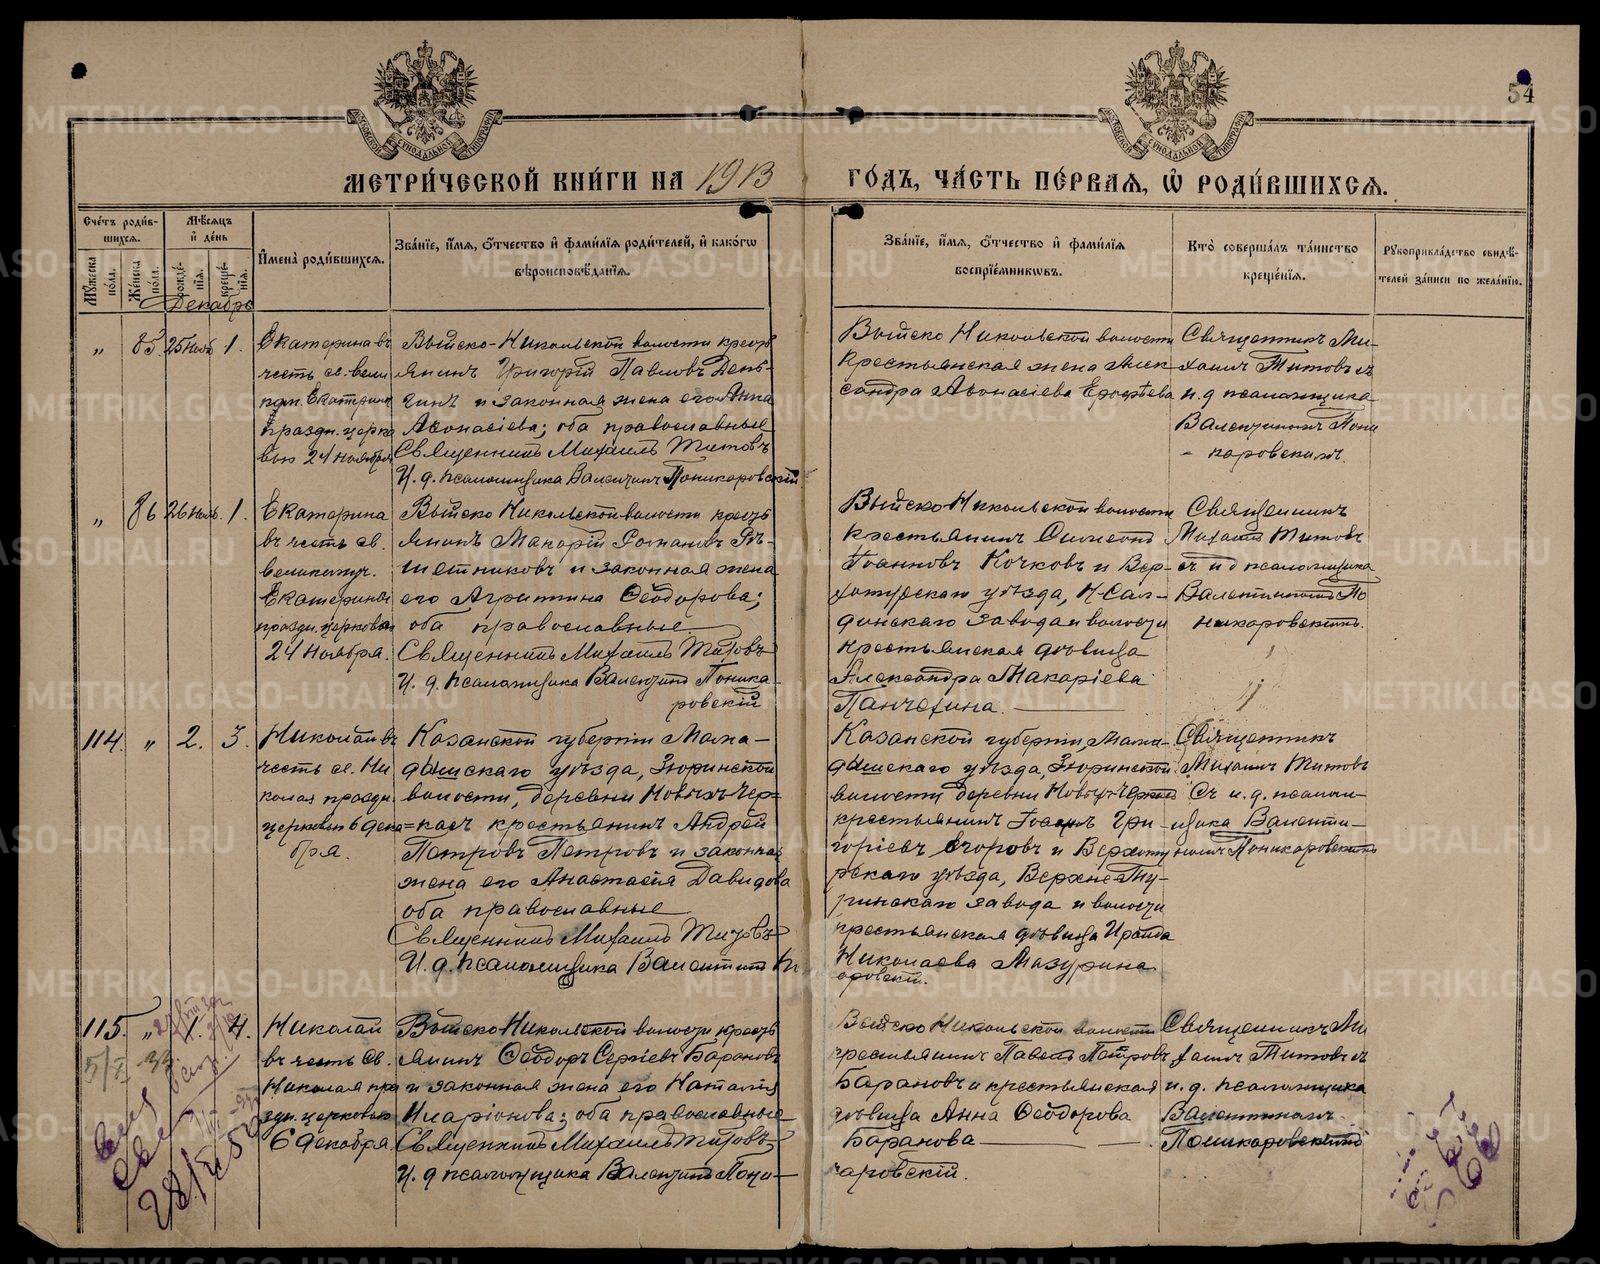 54
МЕТРИ́ЧЕСКОЙ КНИ́ГИ НА 1913 ГО́ДЪ, ЧА́СТЬ ПЕ́РВАЯ, Ѽ РОДИ́ВШИХСЯ.
Сче́тъ роди́в-
шихся.
Мѣ́сяцъ
и́ де́нь
Му́жеска по́ла.
Же́нска по́ла.
рожде́-
нїя.
креще́-
нїя.
И҆мена̀ роди́вшихся.
Зва́нїе, и҆́мя, ѻ҆́тчество и҆ фами́лїя роди́телей, и҆ како́гѡ
вѣроисповѣ́данїя.
Зва́нїе, и҆́мя, ѻ҆́тчество и҆ фами́лїя
воспрїе́мникѡвъ.
Кто̀ соверша́лъ та́инство
креще́нїя.
Рꙋкоприкла́дство свидѣ́-
телей за́писи по жела́нїю.
Декабрь
„ 85 25 Нояб 1.
Екатерина въ
честь св. вели
комч. Екатерин
праздн. церко
вью 24 ноября
Выйско-Никольской волости крест
янинъ Григорій Павловъ День-
гинъ и законная жена его Анна
Аѳонасіева; оба православные
Священникъ Михаилъ Титовъ
И. д. псаломщика Валентинъ Поникаровскій
Выйско Никольской волости
крестьянская жена Алек-
сандра Аѳонасіева Ерофѣева
Священникъ Ми-
хаилъ Титовъ съ
и. д псаломщика
Валентиномъ Пони
каровскимъ.
„ 86 26 Нояб. 1.
Екатерина
въ честь св.
великомуч.
Екатерины
праздн. церковью
24 Ноября.
Выйско Никольской волости крест
янинъ Макарій Романовъ Рѣ-
шетниковъ и законная жена
его Агриппина Ѳеодорова;
оба православные
Священникъ Михаилъ Титовъ
И. д. псаломщика Валентинъ Поника-
ровскій
Выйско-Никольской волости
крестьянинъ Симеонъ
Іоанновъ Кочковъ и Вер-
хотурскаго уѣзда, Н-Сал-
динскаго завода и волости
крестьянская дѣвица
Александра Макаріева
Панчехина.
Священникъ
Михаилъ Титовъ
съ и д псаломщика
Валентиномъ По
никаровскимъ.
114. „ 2. 3.
Николай въ
честь св. Ни
колая праздн.
церковью 6 дека=
бря.
Казанской губерніи Мама-
дышскаго уѣзда, Зюринской
волости, деревни Новыхъ Чер=
касъ крестьянинъ Андрей
Петровъ Петровъ и законная
жена его Анастасія Давидова
оба православные
Священникъ Михаилъ Титовъ
И. д. псаломщика Валентинъ По
Казанской губерніи, Мама-
дышскаго уѣзда, Зюринской
волости деревни Новыхъ Черкасъ
крестьянинъ Іоаннъ Гри-
горіевъ Егоровъ и Верхоту
рскаго уѣзда, Верхне Ту-
ринскаго завода и волости
крестьянская дѣвица Ираида
Николаева Мазурина
аровскій.
Священникъ
Михаилъ Титовъ
Съ и. д. псалом-
щика Валенти-
номъ Поникаровскимъ
115. „ 1. 4.
Николай
въ честь св.
Николая пра
здн. церковью
6 декабря.
Выйско Никольской волости крест
янинъ Ѳеодоръ Сергіевъ Барановъ
и законная жена его Наталія
Иларіонова; оба православные
Священникъ Михаилъ Титовъ
И. д псаломщика Валентинъ Пони-
Выйско Никольской волости
крестьянинъ Павелъ Петровъ
Барановъ и крестьянская
дѣвица Анна Ѳеодорова
Баранова
каровскій.
Священникъ Ми
хаилъ Титовъ съ
и. д. псаломщика
Валентиномъ
Поникаровскимъ